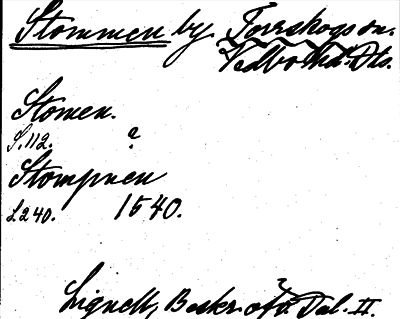 Stommen by Torrskogs sn.
Vedbo hd. Dls.
Stomen.
S. 112. ?
Stompnen
L 240. 1540.
Lignell, Beskr. öfv. Dal. II.